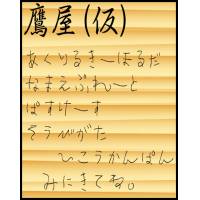 鷹屋(仮)
あくりるきーほるだ
なまえぷれーと
ぱすけーす
そうびがた
ひこうかんばん
みにきてね。